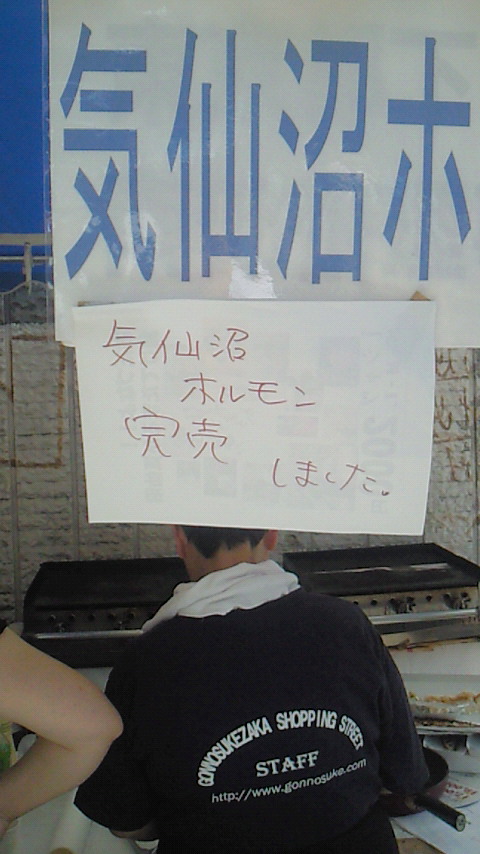 気仙沼ホ
気仙沼
ホルモン
完売
しました。
GONNOSUKEZAKA SHOPPING STREET
STAFF
http://www.gonnosuke.com